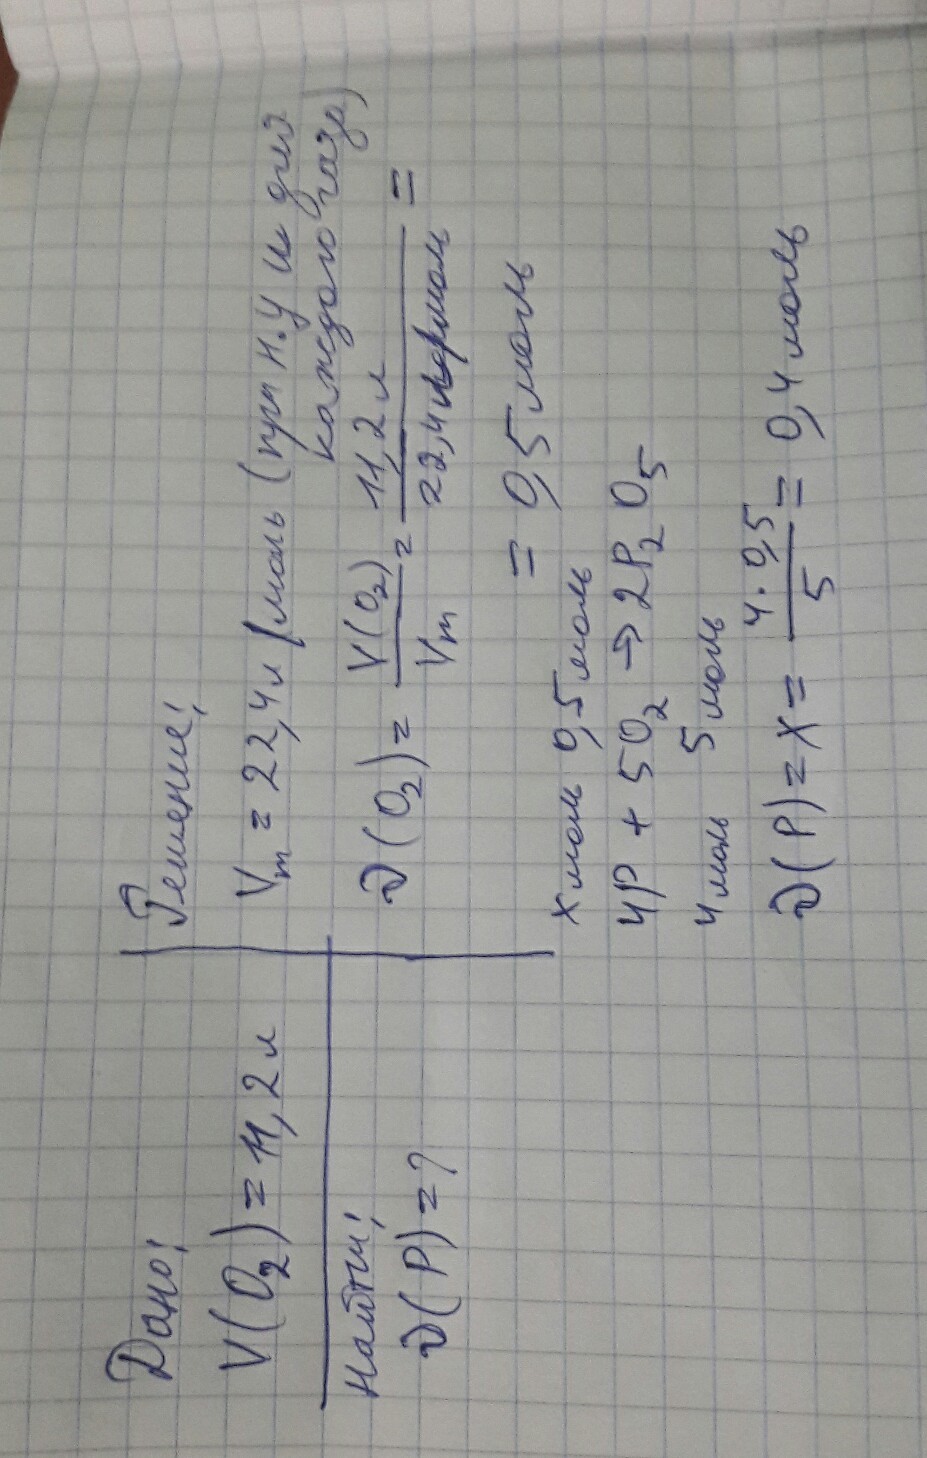 Дано:
V(O2) = 11,2 л
Найти:
ν(P) = ?
Решение:
Vm = 22,4 л/моль (при н.у и для
каждого газа)
ν(O2) = V(O2)/Vm = 11,2 л/22,4 л/моль =
= 0,5 моль
x моль 0,5 моль
4P + 5O2 → 2P2O5
4 моль 5 моль
ν(P) = x = 4·0,5/5 = 0,4 моль